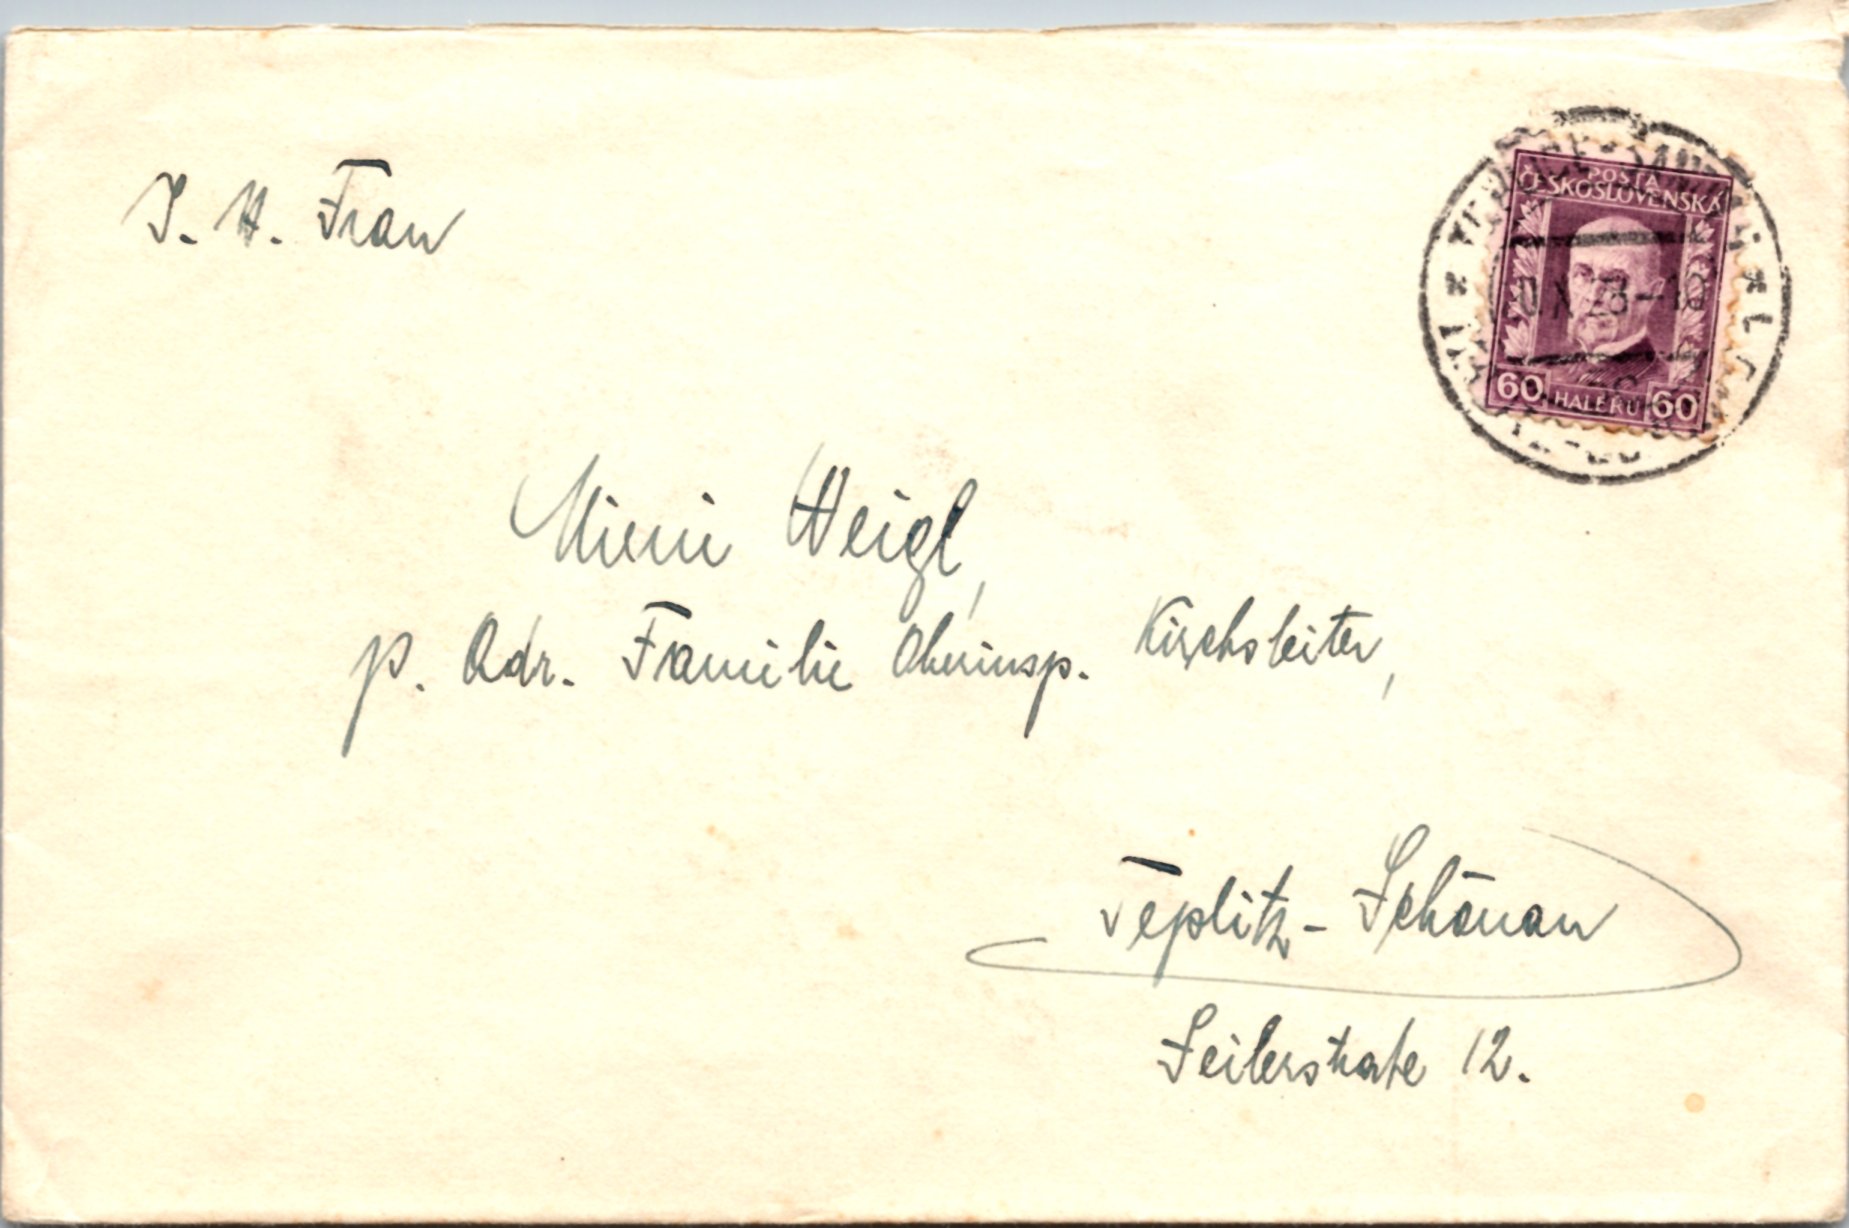 I. H. Frau
POŠTA
ČESKOSLOVENSKÁ
60 HALÉŘŮ 60
Mimi Weigl,
p. Adr. Familie Oberinsp. Kirchsleiter,
Teplitz-Schönau
Seilerstraße 12.